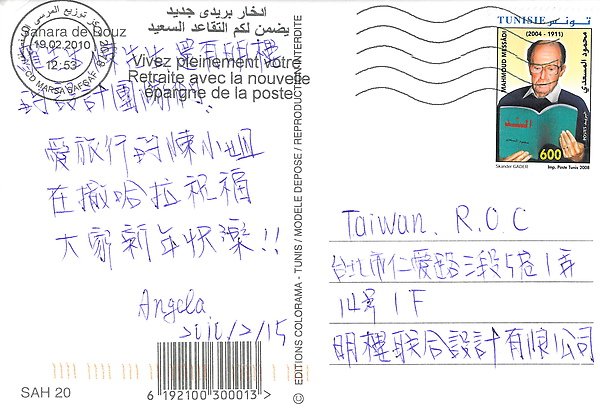 ادخار بريدي جديد
يضمن لكم التقاعد السعيد
Sahara de Douz
19.02.2010
12:53
Vivez pleinement votre
Retraite avec la nouvelle
épargne de la poste
還有明樓
的設計團隊
愛旅行的陳小姐
在撒哈拉祝福
大家新年快樂!!
Angela
2010/2/15
SAH 20
6192100300013
© EDITIONS COLORAMA - TUNIS / MODELE DEPOSE / REPRODUCTION INTERDITE
TUNISIE تونس
(2004 - 1911)
MAHMOUD MESSADI
محمود المسعدي
السد
600
Skander GADER
Imp. Poste Tunis 2008
Taiwan. R.O.C
台北市仁愛路三段5巷1弄
14號1F
明樓联合設計有限公司